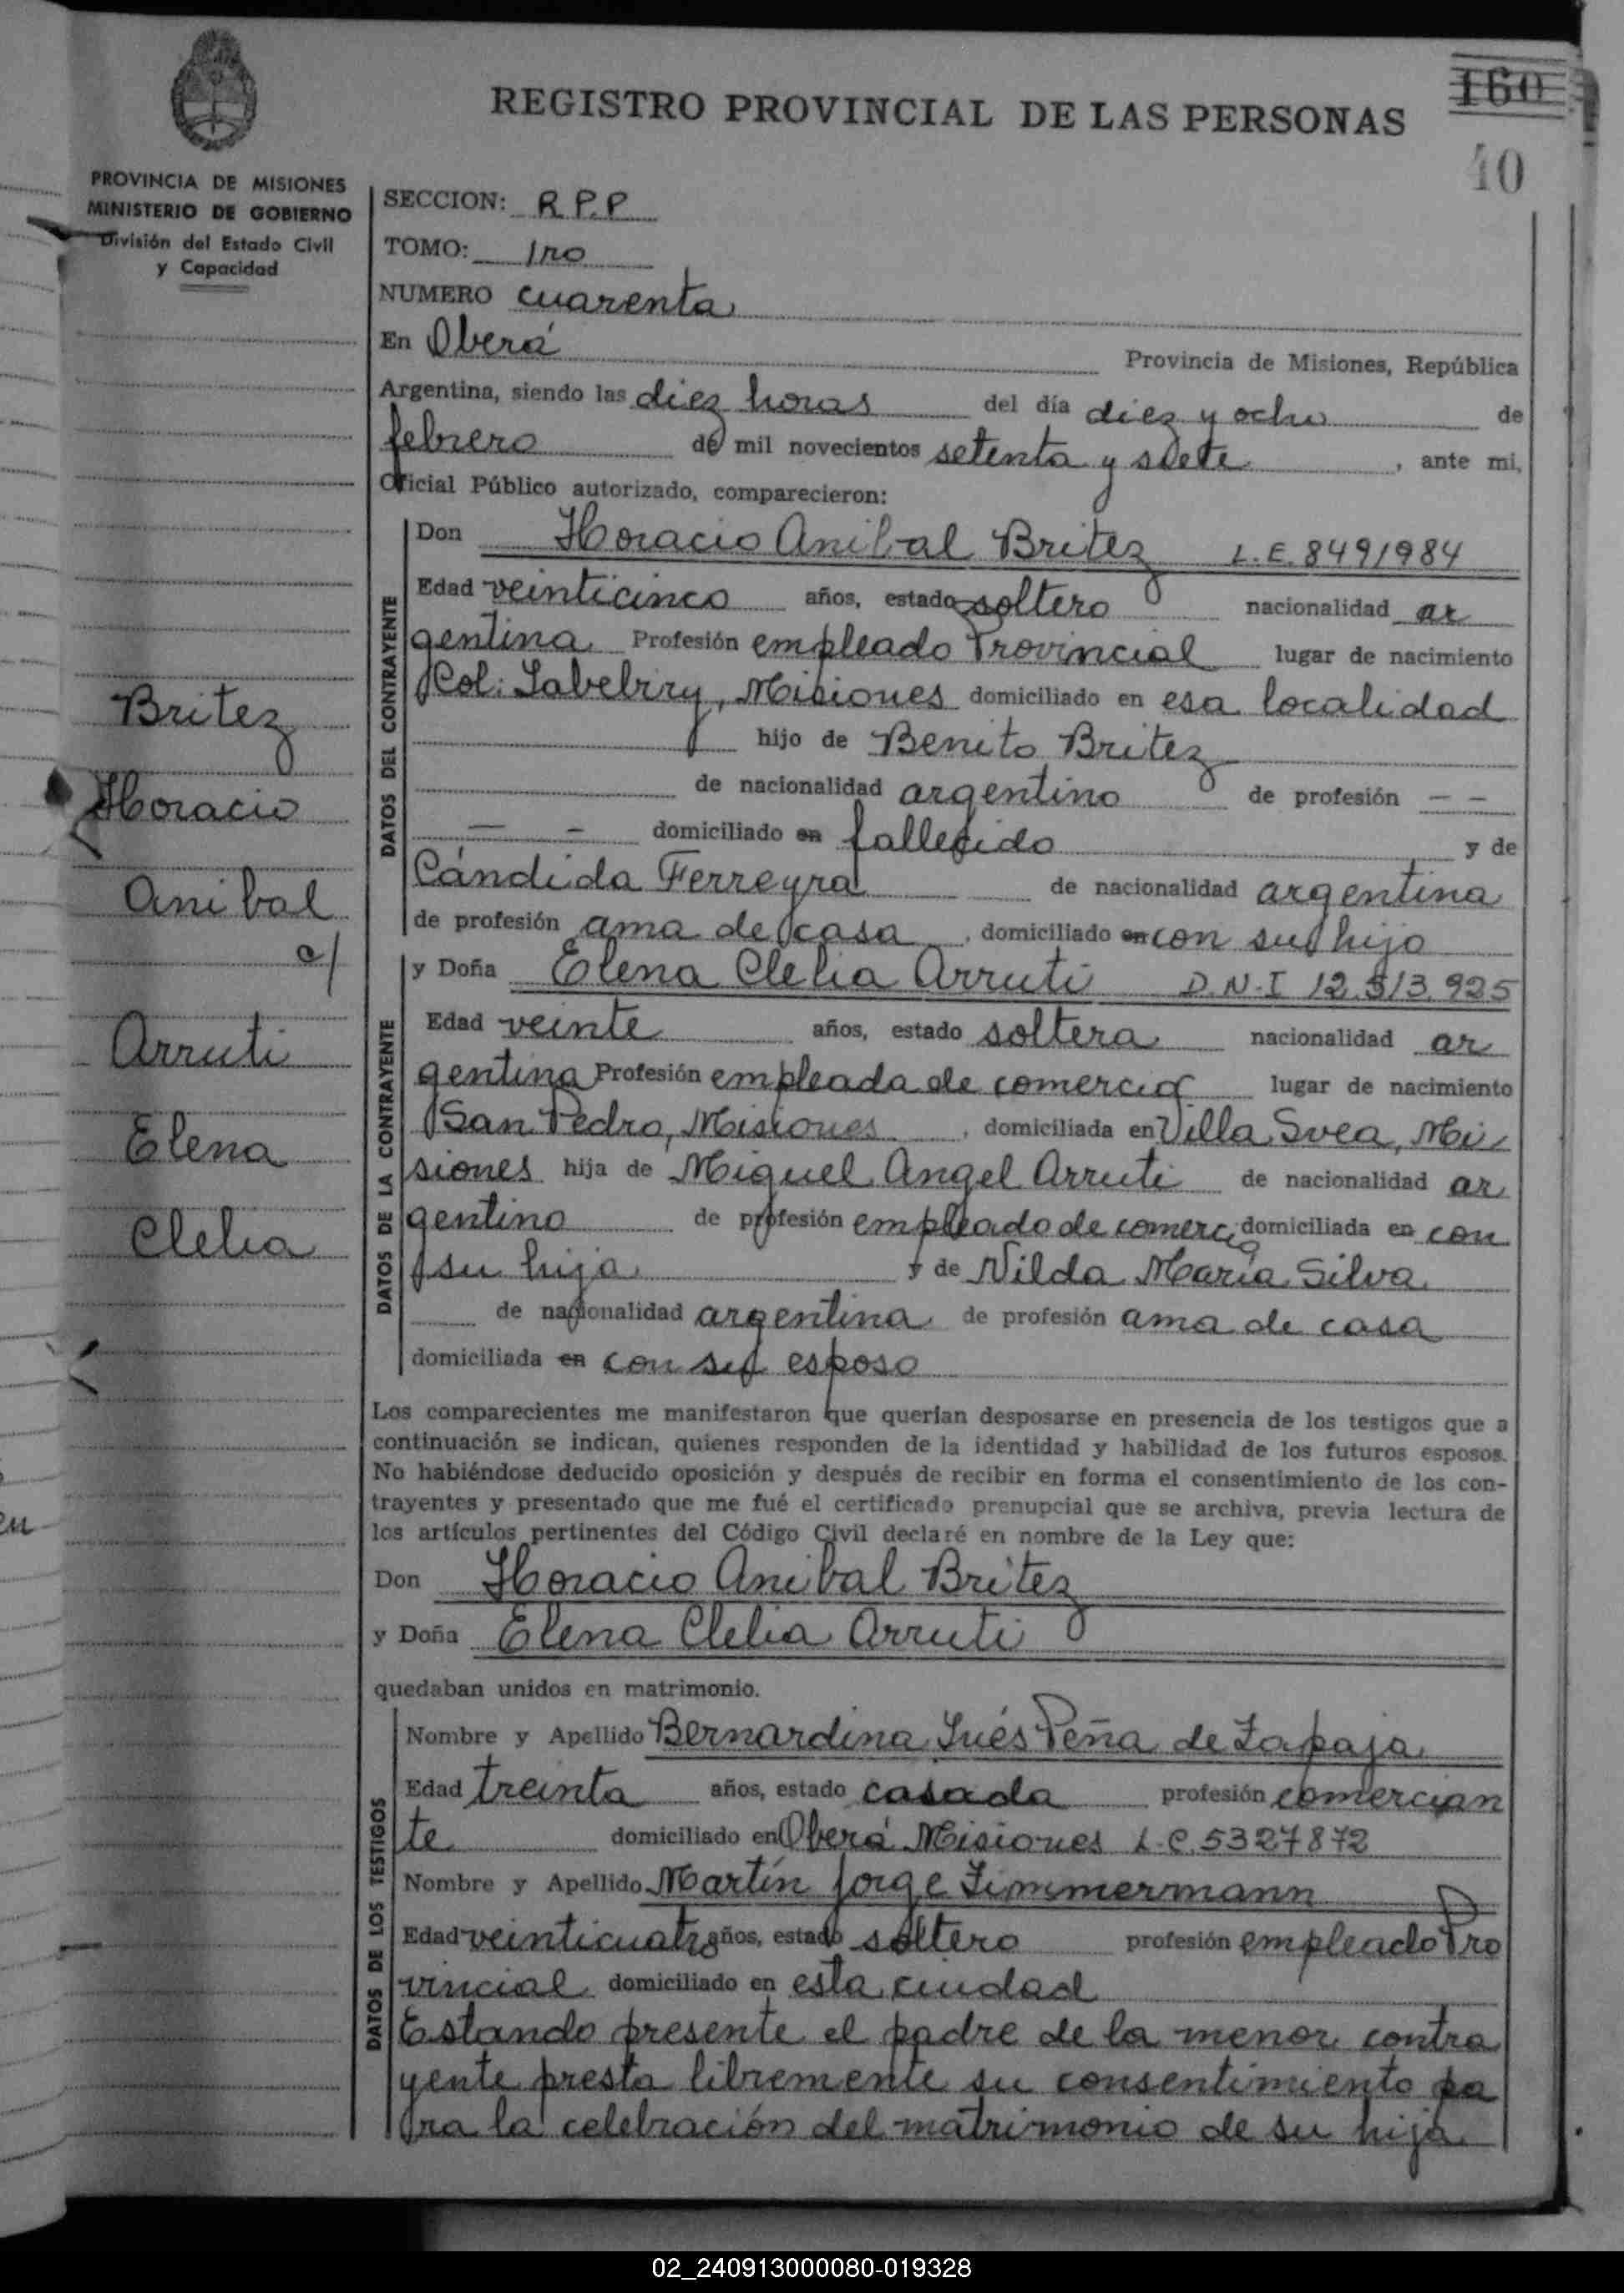 160
REGISTRO PROVINCIAL DE LAS PERSONAS
40
PROVINCIA DE MISIONES
MINISTERIO DE GOBIERNO
División del Estado Civil
y Capacidad
SECCION: R.P.P
TOMO: 1ro
NUMERO cuarenta
En Oberá Provincia de Misiones, República
Argentina, siendo las diez horas del día diez y ocho de
febrero de mil novecientos setenta y siete, ante mi,
Oficial Público autorizado, comparecieron:
DATOS DEL CONTRAYENTE
Don Horacio Anibal Britez L.E. 8491984
Edad veinticinco años, estado soltero nacionalidad ar
gentina Profesión empleado Provincial lugar de nacimiento
Col: Yabebiry, Misiones domiciliado en esa localidad
hijo de Benito Britez
de nacionalidad argentino de profesión — —
— — domiciliado en fallecido y de
Cándida Ferreyra de nacionalidad argentina
de profesión ama de casa, domiciliado en con su hijo
Britez
Horacio
Anibal
c/
Arruti
Elena
Clelia
DATOS DE LA CONTRAYENTE
y Doña Elena Clelia Arruti D.N.I 12.513.925
Edad veinte años, estado soltera nacionalidad ar
gentina Profesión empleada de comercio lugar de nacimiento
San Pedro, Misiones, domiciliada en Villa Svea, Mi
siones hija de Miguel Angel Arruti de nacionalidad ar
gentino de profesión empleado de comercio domiciliada en con
su hija y de Nilda María Silva
de nacionalidad argentina de profesión ama de casa
domiciliada en con su esposo
Los comparecientes me manifestaron que querían desposarse en presencia de los testigos que a
continuación se indican, quienes responden de la identidad y habilidad de los futuros esposos.
No habiéndose deducido oposición y después de recibir en forma el consentimiento de los con-
trayentes y presentado que me fué el certificado prenupcial que se archiva, previa lectura de
los artículos pertinentes del Código Civil declaré en nombre de la Ley que:
Don Horacio Anibal Britez
y Doña Elena Clelia Arruti
quedaban unidos en matrimonio.
DATOS DE LOS TESTIGOS
Nombre y Apellido Bernardina Inés Peña de Zapaja
Edad treinta años, estado casada profesión comercian
te domiciliado en Oberá Misiones L.C. 5327872
Nombre y Apellido Martín Jorge Zimmermann
Edad veinticuatro años, estado soltero profesión empleado Pro
vincial domiciliado en esta ciudad
Estando presente el padre de la menor contra
yente presta libremente su consentimiento pa
ra la celebración del matrimonio de su hija
02_240913000080-019328